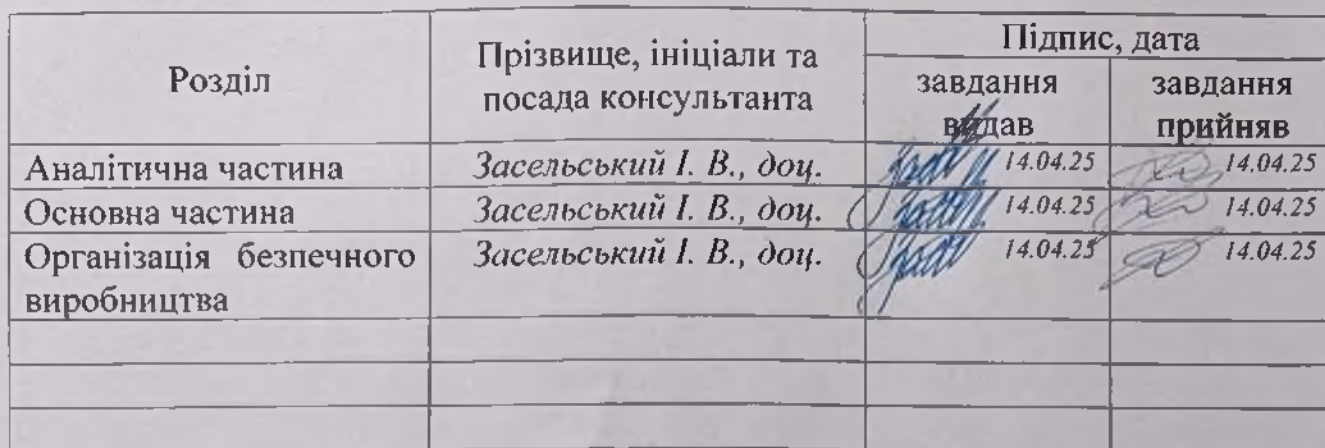 Розділ
Прізвище, ініціали та
посада консультанта
Підпис, дата
завдання
видав
завдання
прийняв
Аналітична частина Засельський І. В., доц. 14.04.25 14.04.25
Основна частина Засельський І. В., доц. 14.04.25 14.04.25
Організація безпечного Засельський І. В., доц. 14.04.25 14.04.25
виробництва